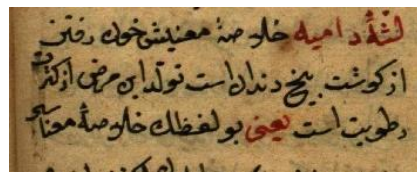 لثهٔ دامیه خلاصهٔ معنیش خون رفتن
از کوشت بیخ دندان است تولد این مرض از کثرت
رطوبت است یعنی بو لفظك خلاصهٔ معناسی